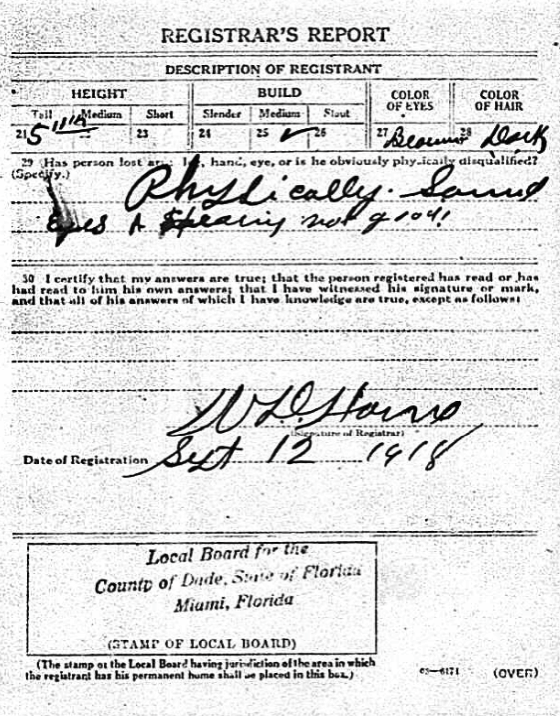 REGISTRAR'S REPORT
DESCRIPTION OF REGISTRANT
HEIGHT BUILD COLOR OF EYES COLOR OF HAIR
Tall Medium Short Slender Medium Stout
21 5 11 22 23 24 25 ✓ 26 27 Brown 28 Dark
29 Has person lost arm, leg, hand, eye, or is he obviously physically disqualified?
(Specify.)
Physically Sound
Eyes & Hearing not good!
30 I certify that my answers are true; that the person registered has read or has
had read to him his own answers; that I have witnessed his signature or mark,
and that all of his answers of which I have knowledge are true, except as follows:
(Signature of Registrar)
Date of Registration Sept 12 1918
Local Board for the
County of Dade, State of Florida
Miami, Florida
(STAMP OF LOCAL BOARD)
(The stamp of the Local Board having jurisdiction of the area in which
the registrant has his permanent home shall be placed in this box.)
03—6171 (OVER)